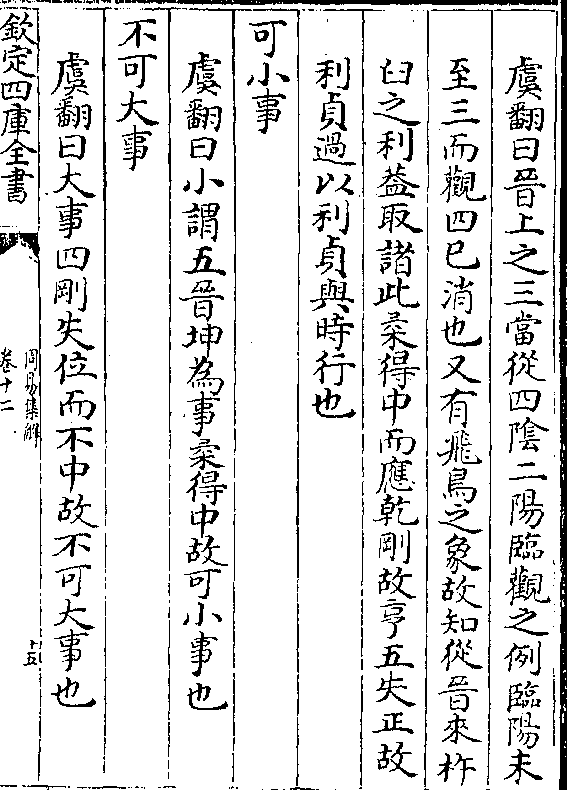 虞翻曰晉上之三當從四陰二陽臨觀之例臨陽未
至三而觀四已消也又有飛鳥之象故知從晉來杵
臼之利葢取諸此柔得中而應乾剛故亨五失正故
利貞過以利貞與時行也
可小事
虞翻曰小謂五晉坤為事柔得中故可小事也
不可大事
虞翻曰大事四剛失位而不中故不可大事也
欽定四庫全書
周易集解
卷十二
十五